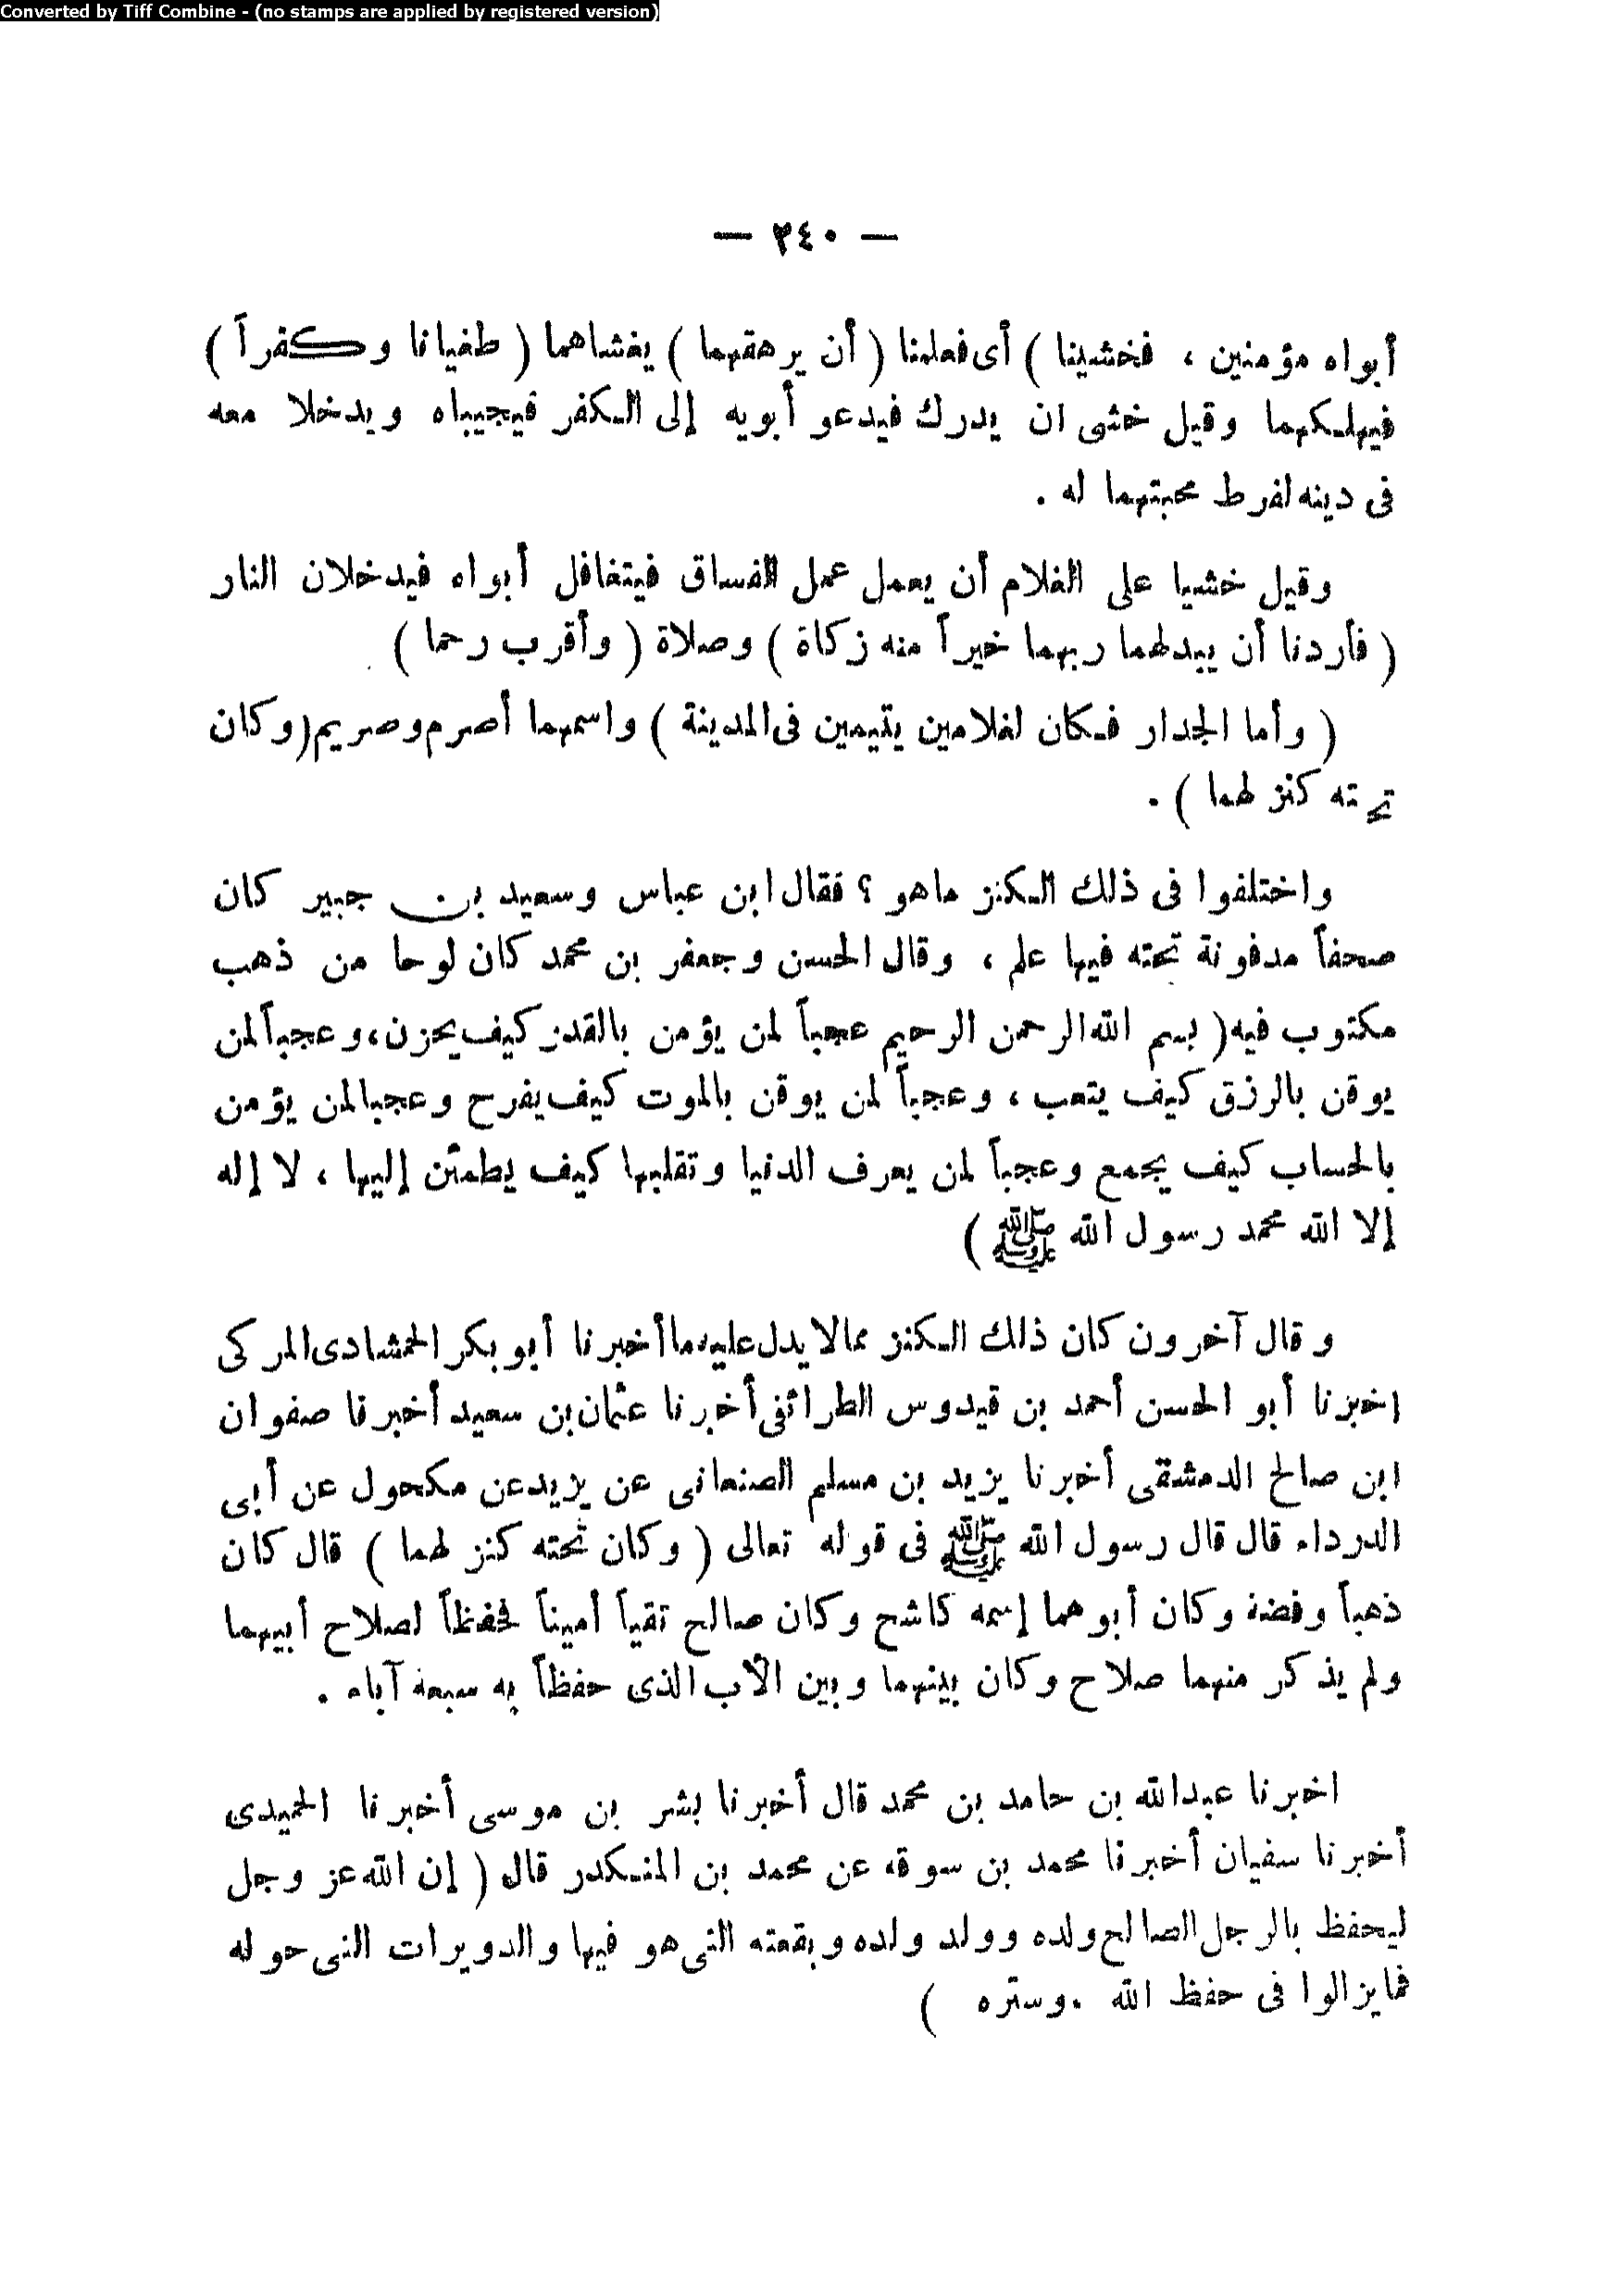 Converted by Tiff Combine - (no stamps are applied by registered version)
— ٢٤٠ —
أبواه مؤمنين ، فخشينا ) أى فعلمنا ( أن يرهقهما ) يغشاهما ( طغيانا وكفراً )
فيهلكهما وقيل خشى ان يدرك فيدعو أبويه إلى الكفر فيجيباه ويدخلا معه
فى دينه لفرط محبتهما له .
وقيل خشيا على الغلام أن يعمل عمل الفساق فيتغافل أبواه فيدخلان النار
( فأردنا أن يبدلهما ربهما خيراً منه زكاة ) وصلاة ( وأقرب رحما )
( وأما الجدار فكان لغلامين يتيمين فى المدينة ) واسمهما أصرم وصريم ( وكان
تحته كنز لهما ) .
واختلفوا فى ذلك الكنز ماهو ؟ فقال ابن عباس وسعيد بن جبير كان
صحفاً مدفونة تحته فيها علم ، وقال الحسن وجعفر بن محمد كان لوحا من ذهب
مكتوب فيه ( بسم الله الرحمن الرحيم عجباً لمن يؤمن بالقدر كيف يحزن ، وعجباً لمن
يوقن بالرزق كيف يتعب ، وعجباً لمن يوقن بالموت كيف يفرح وعجبا لمن يؤمن
بالحساب كيف يجمع وعجباً لمن يعرف الدنيا وتقلبها كيف يطمئن إليها ، لا إله
إلا الله محمد رسول الله ﷺ )
وقال آخرون كان ذلك الكنز ممالا يدل عليه ما أخبرنا أبو بكر الحمشادى المركى
اخبرنا أبو الحسن أحمد بن قيدوس الطرائفى أخبرنا عثمان بن سعيد أخبرنا صفوان
ابن صالح الدمشقى أخبرنا يزيد بن مسلم الصنعانى عن يزيد عن مكحول عن أبى
الدرداء قال قال رسول الله ﷺ فى قوله تعالى ( وكان تحته كنز لهما ) قال كان
ذهباً وفضة وكان أبوهما إسمه كاشح وكان صالح تقياً أميناً لحفظاً لصلاح أبيهما
ولم يذكر منهما صلاح وكان بينهما وبين الأب الذى حفظاً به سبعة آباء .
اخبرنا عبدالله بن حامد بن محمد قال أخبرنا بشر بن موسى أخبرنا الحميدى
أخبرنا سفيان أخبرنا محمد بن سوقه عن محمد بن المنكدر قال ( إن الله عز وجل
ليحفظ بالرجل الصالح ولده وولد ولده وبقعته التى هو فيها والدويرات التى حوله
فمايزالوا فى حفظ الله .وستره )